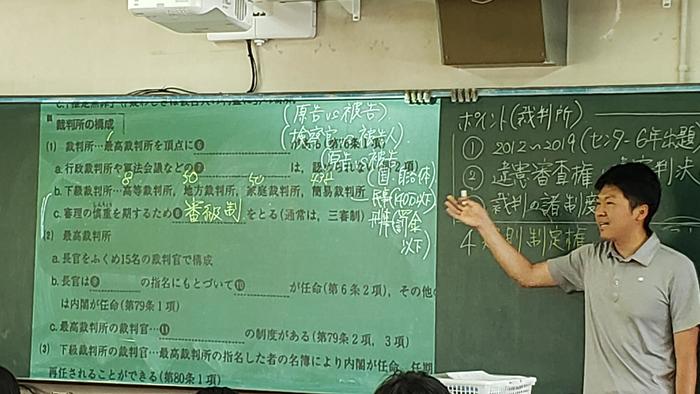 裁判所の構成
(1) 裁判所…最高裁判所を頂点に❻
(第76条1項)
a.行政裁判所や憲法会議などの❼ は,認め
8 50 50 438
b.下級裁判所…高等裁判所,地方裁判所,家庭裁判所,簡易裁判所
c.審理の慎重を期するため❽ 審級制 をとる(通常は,三審制)
(2) 最高裁判所
a.長官をふくめ15名の裁判官で構成
b.長官は❾ の指名にもとづいて❿ が任命(第6条2項),その他の
は内閣が任命(第79条1項)
c.最高裁判所の裁判官…⓫ の制度がある(第79条2項,3項)
(3) 下級裁判所の裁判官…最高裁判所の指名した者の名簿により内閣が任命,任期
再任されることができる(第80条1項)
(原告vs被告)
(検察官vs被告人)
(原告vs被告
国・自治体)
民事(140以下)
刑事(罰金
以下)
ポイント(裁判所)
① 2012〜2019(センター6年出題)
② 違憲審査権 判決
③ 裁判の諸制度
4 規則制定権